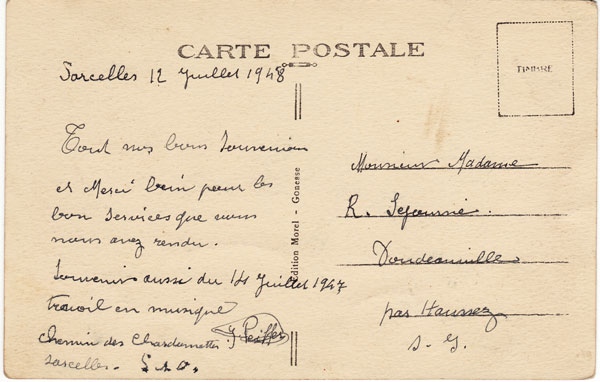 CARTE POSTALE
TIMBRE
Sarcelles 12 Juillet 1948
Tout nos bons Souvenirs
et Merci bein pour les
bon Services que vous
nous avez rendu.
Souvenir aussi du 14 Juillet 1947
travail en musique
J Peiffer
chemin des Chardonnettes
Sarcelles. S & O.
Edition Morel - Gonesse
Monsieur Madame
R. Sejourné
Doudeauville
par Haussez
S. I.